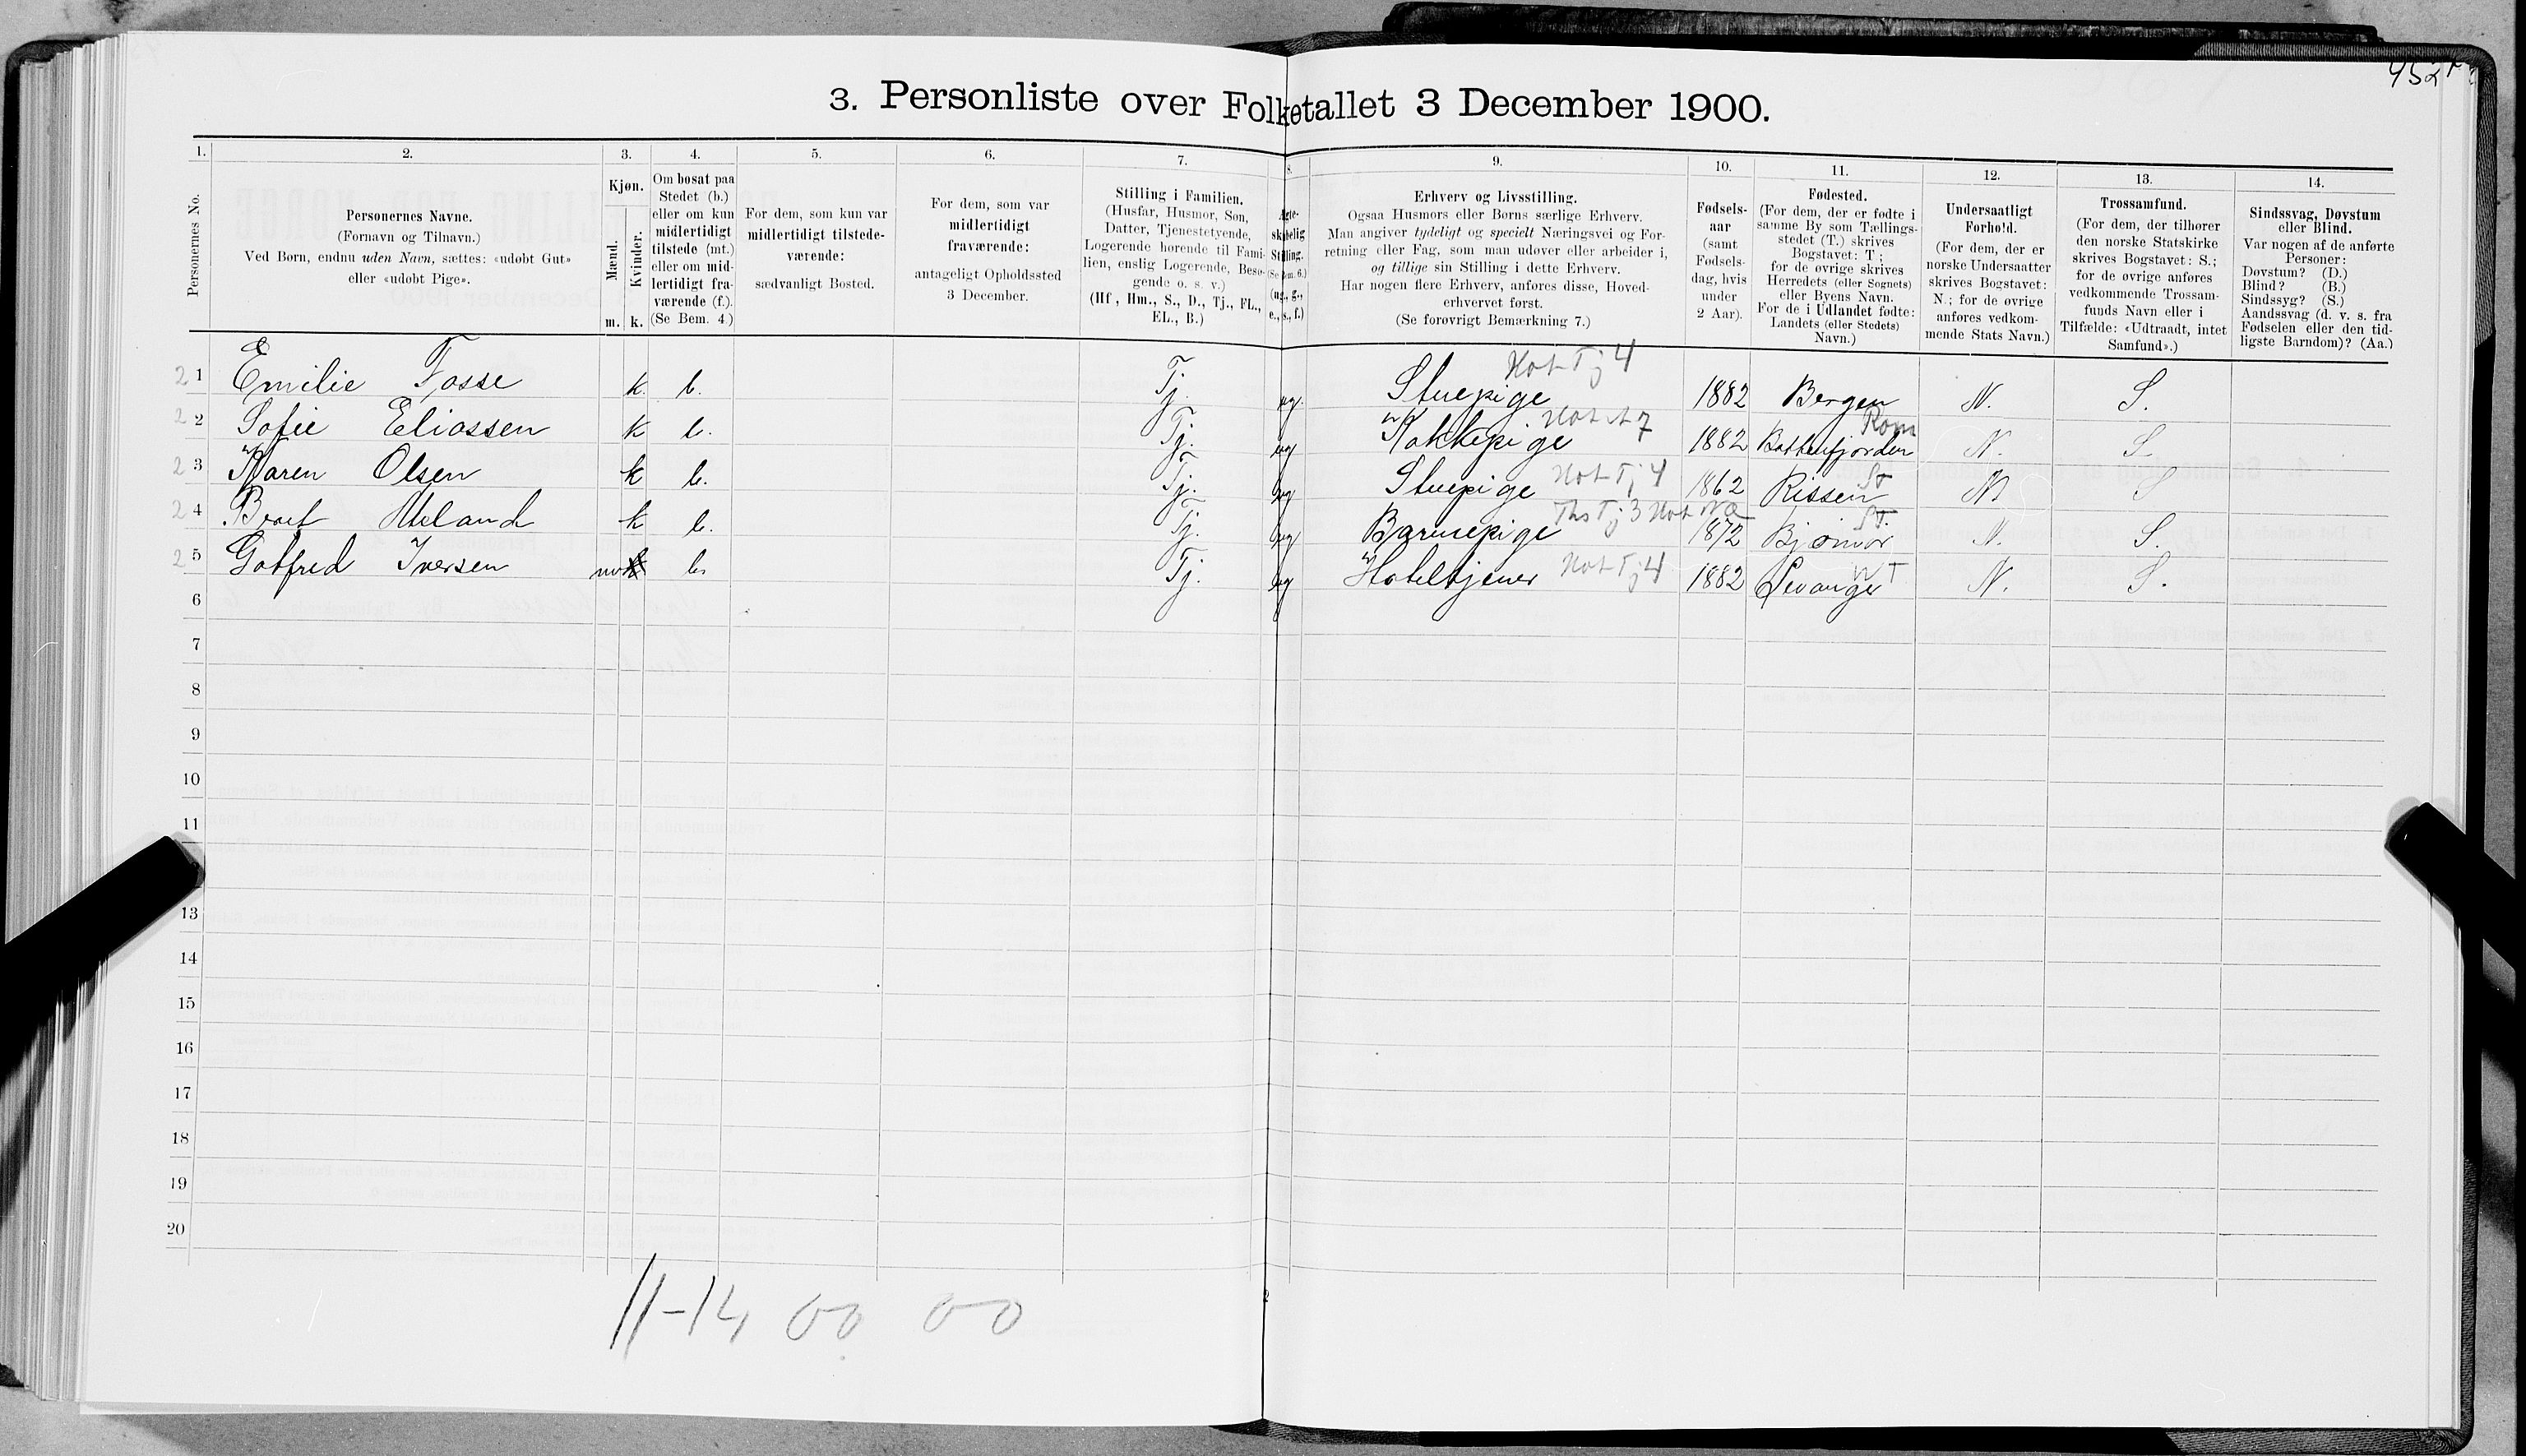 452
3. Personliste over Folketallet 3 December 1900.
1. 2. 3. 4. 5. 6. 7. 8. 9. 10. 11. 12. 13. 14.
Personernes No.
Personernes Navne.
(Fornavn og Tilnavn.)
Ved Børn, endnu uden Navn, sættes: «udøbt Gut»
eller «udøbt Pige».
Kjøn.
Mænd.
Kvinder.
m. k.
Om bosat paa
Stedet (b.)
eller om kun
midlertidigt
tilstede (mt.)
eller om mid-
lertidigt fra-
værende (f.).
(Se Bem. 4.)
For dem, som kun var
midlertidigt tilstede-
værende:
sædvanligt Bosted.
For dem, som var
midlertidigt
fraværende:
antageligt Opholdssted
3 December.
Stilling i Familien.
(Husfar, Husmor, Søn,
Datter, Tjenestetyende,
Logerende hørende til Fami-
lien, enslig Logerende, Besø-
gende o. s. v.)
(Hf, Hm., S., D., Tj., FL.,
EL., B.)
Ægte-
skabelig
Stilling.
(Se Bem. 6.)
(ug., g.,
e., s., f.)
Erhverv og Livsstilling.
Ogsaa Husmors eller Børns særlige Erhverv.
Man angiver tydeligt og specielt Næringsvei og For-
retning eller Fag, som man udøver eller arbeider i,
og tillige sin Stilling i dette Erhverv.
Har nogen flere Erhverv, anføres disse, Hoved-
erhvervet først.
(Se forøvrigt Bemærkning 7.)
Fødsels-
aar
(samt
Fødsels-
dag, hvis
under
2 Aar).
Fødested.
(For dem, der er fødte i
samme By som Tællings-
stedet (T.) skrives
Bogstavet: T;
for de øvrige skrives
Herredets (eller Sognets)
eller Byens Navn.
For de i Udlandet fødte:
Landets (eller Stedets)
Navn.)
Undersaatligt
Forhold.
(For dem, der er
norske Undersaatter
skrives Bogstavet:
N.; for de øvrige
anføres vedkom-
mende Stats Navn.)
Trossamfund.
(For dem, der tilhører
den norske Statskirke
skrives Bogstavet: S.;
for de øvrige anføres
vedkommende Trossam-
funds Navn eller i
Tilfælde: «Udtraadt, intet
Samfund».)
Sindssvag, Døvstum
eller Blind.
Var nogen af de anførte
Personer:
Døvstum? (D.)
Blind? (B.)
Sindssyg? (S.)
Aandssvag (d. v. s. fra
Fødselen eller den tid-
ligste Barndom)? (Aa.)
2 1 Emilie Fosse k. b. Tj. ug. Stuepige Hot Tj 4 1882 Bergen N. S.
2 2 Sofie Eliassen k b. Tj. ug Kokkepige 7 1882 Rom N. S.
2 3 Karen Olsen k b. Tj. ug Stuepige Hot Tj 4 1862 Rissen St N S
2 4 k b. Tj. ug Barnepige Ths Tj 3 Hot 1872 Bjørnør ST. N. S.
2 5 Gotfred Iversen m b. Tj. ug Hoteltjener Hot Tj 4 1882 Levanger NT N. S.
6
7
8
9
10
11
13
14
15
16
17
18
19
20
11-14 00 00
2